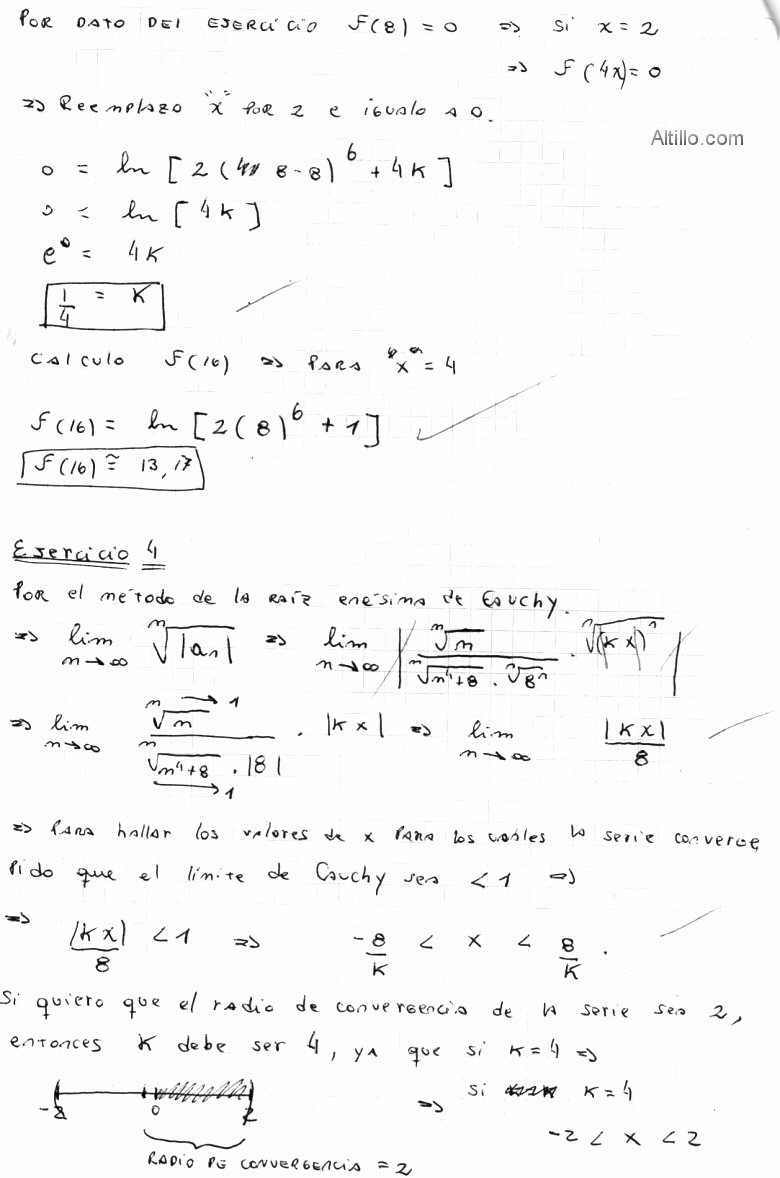 POR DATO DEl EJERCiCiO F(8) = 0 ⇒ Si x = 2
⇒ F(4x) = 0
⇒ Reemplazo "x" por 2 e igualo a 0.
Altillo.com
0 = ln [ 2 ( 8-8)^6 + 4K ]
0 = ln [ 4K ]
e^0 = 4K
1/4 = K
CALCULO F(16) ⇒ PARA "x" = 4
F(16) = ln [ 2 ( 8 )^6 + 1 ]
F(16) ≅ 13,17
Ejercicio 4
Por el método de la raíz enésima de Cauchy.
⇒ lim n→∞ ⁿ√|an| ⇒ lim n→∞ | ⁿ√n / (ⁿ√(n^4+8) . ⁿ√8^n) . ⁿ√(Kx)^n |
⇒ lim n→∞ ⁿ√n →1 / (ⁿ√(n^4+8) →1 . |8|) . |Kx| ⇒ lim n→∞ |Kx|/8
⇒ Para hallar los valores de x para los cuales la serie converge
Pido que el límite de Cauchy sea < 1 ⇒
⇒ |Kx|/8 < 1 ⇒ -8/K < x < 8/K .
Si quiero que el radio de convergencia de la serie sea 2,
entonces K debe ser 4, ya que si K = 4 ⇒
-2 0 2
⇒ Si K = 4
-2 < x < 2
RADIO DE CONVERGENCIA = 2